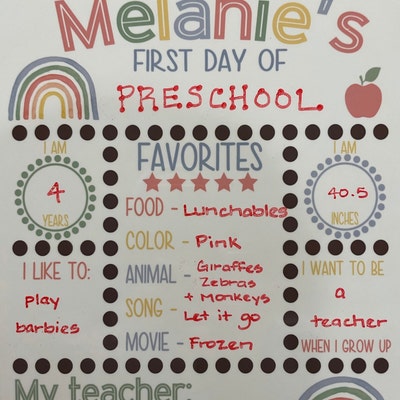 Melanie's
FIRST DAY OF
PRESCHOOL
I AM
4
YEARS
FAVORITES
FOOD - Lunchables
COLOR - Pink
ANIMAL - Giraffes
Zebras
+ Monkeys
SONG - Let it go
MOVIE - Frozen
I AM
40.5
INCHES
I LIKE TO:
play
barbies
I WANT TO BE
a
teacher
WHEN I GROW UP
My teacher: